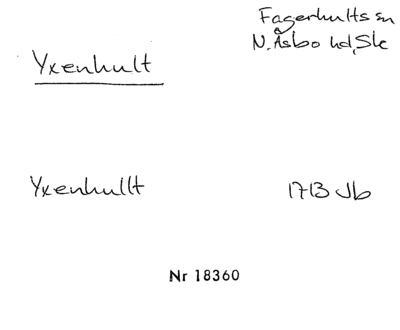 Fagerhults sn
N. Åsbo hd, Sk
Yxenhult
Yxenhullt 1713 Jb
Nr 18360